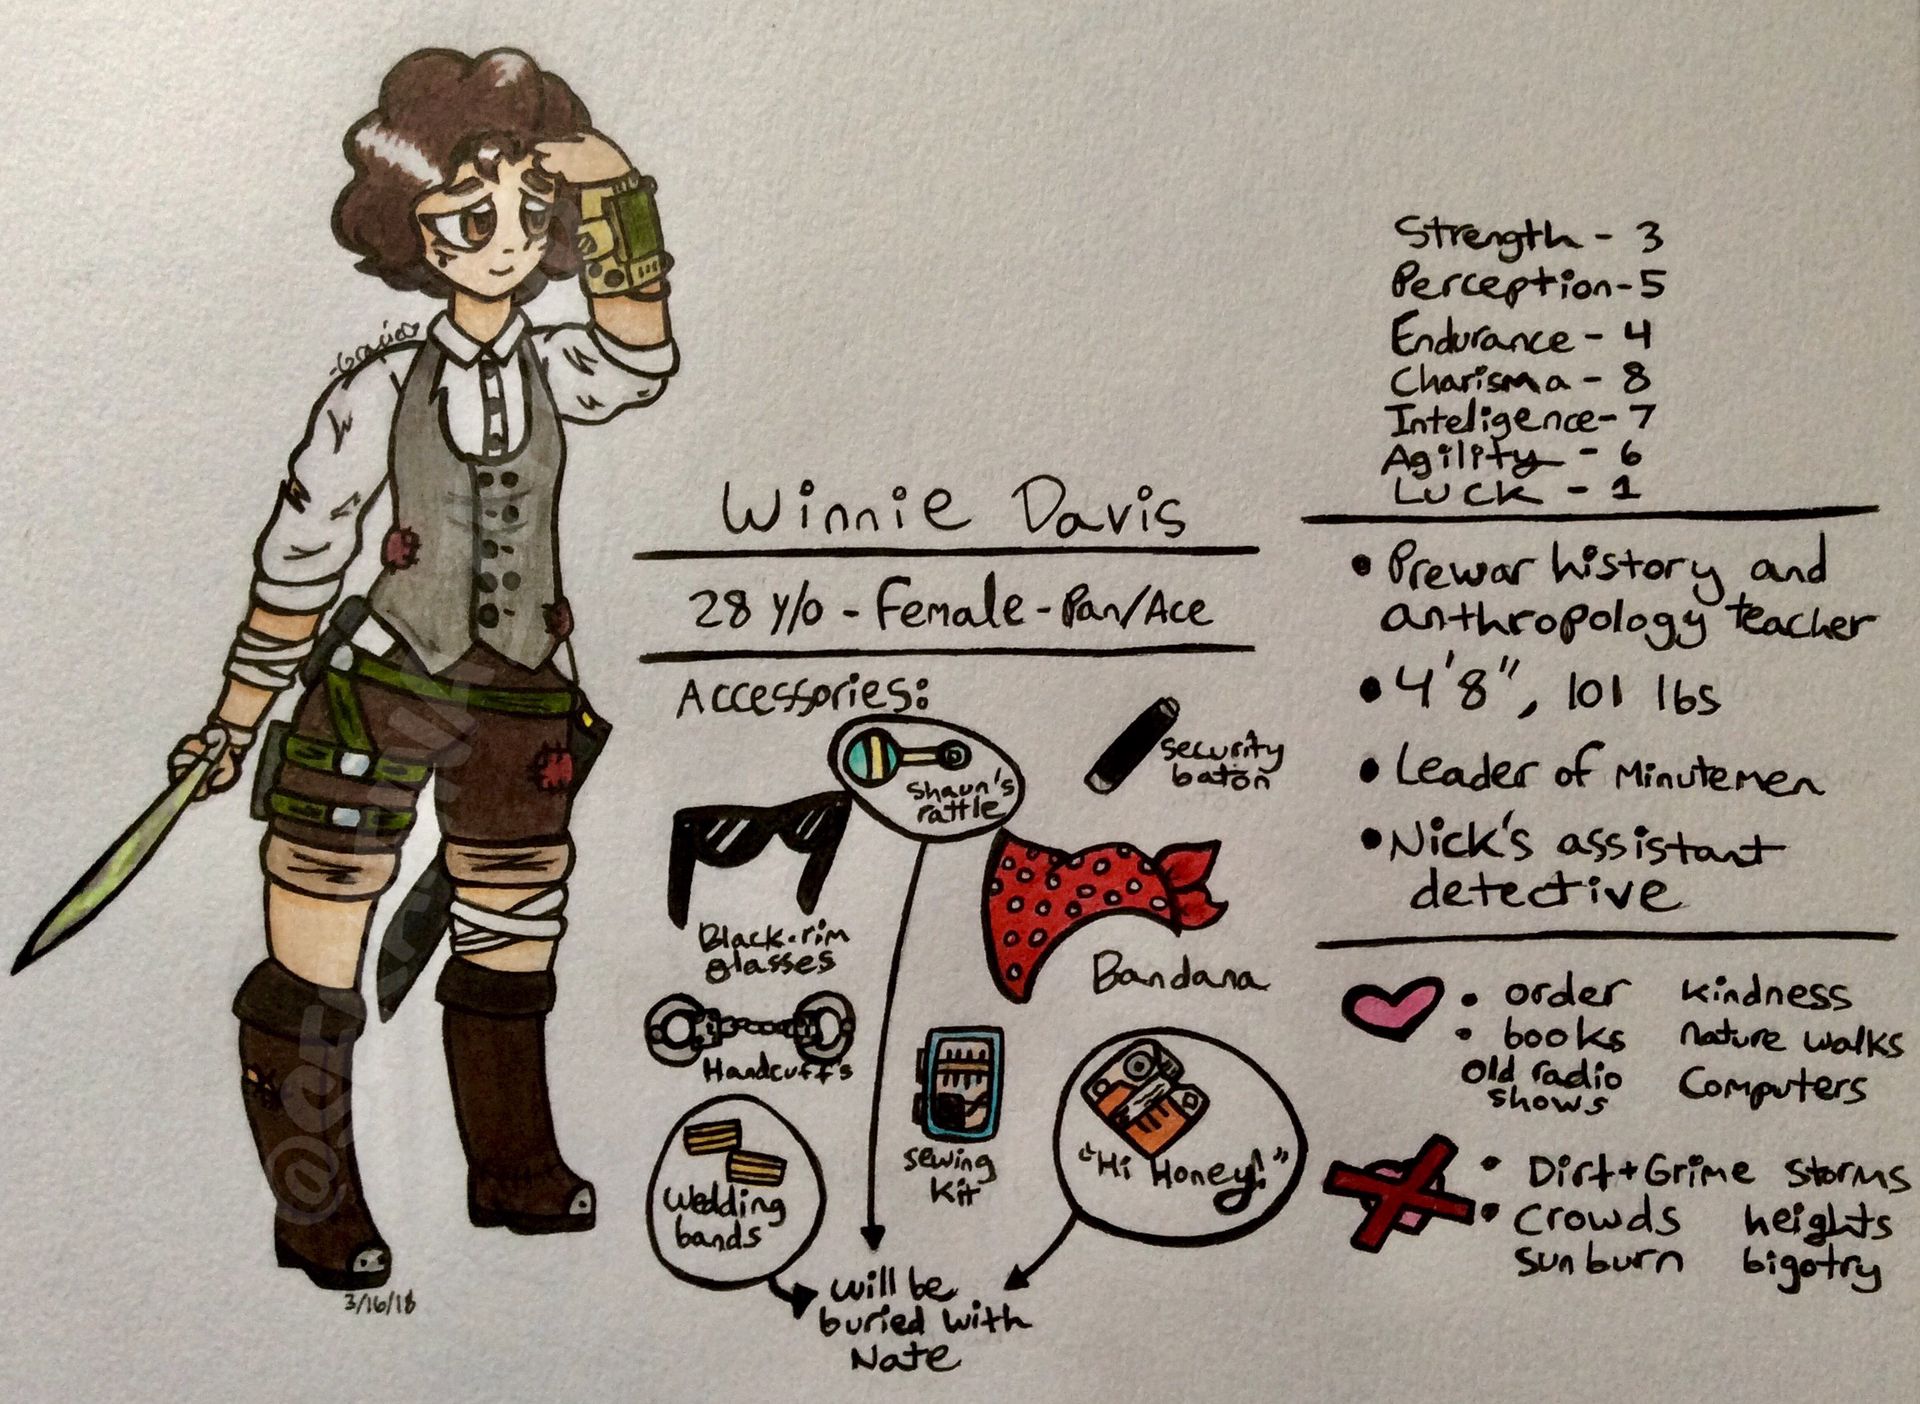 -Gracie
Winnie Davis
28 y/o - Female - Pan/Ace
Accessories:
Shaun's
rattle
security
baton
Black-rim
glasses
Bandana
Handcuffs
Sewing
kit
"Hi Honey!"
Wedding
bands
will be
buried with
Nate
3/16/18
Strength - 3
Perception - 5
Endurance - 4
Charisma - 8
Inteligence - 7
Agility - 6
Luck - 1
• Prewar history and
anthropology teacher
• 4'8", 101 lbs
• Leader of Minutemen
• Nick's assistant
detective
• order kindness
• books nature walks
old radio
shows computers
• Dirt + Grime storms
• crowds heights
sunburn bigotry